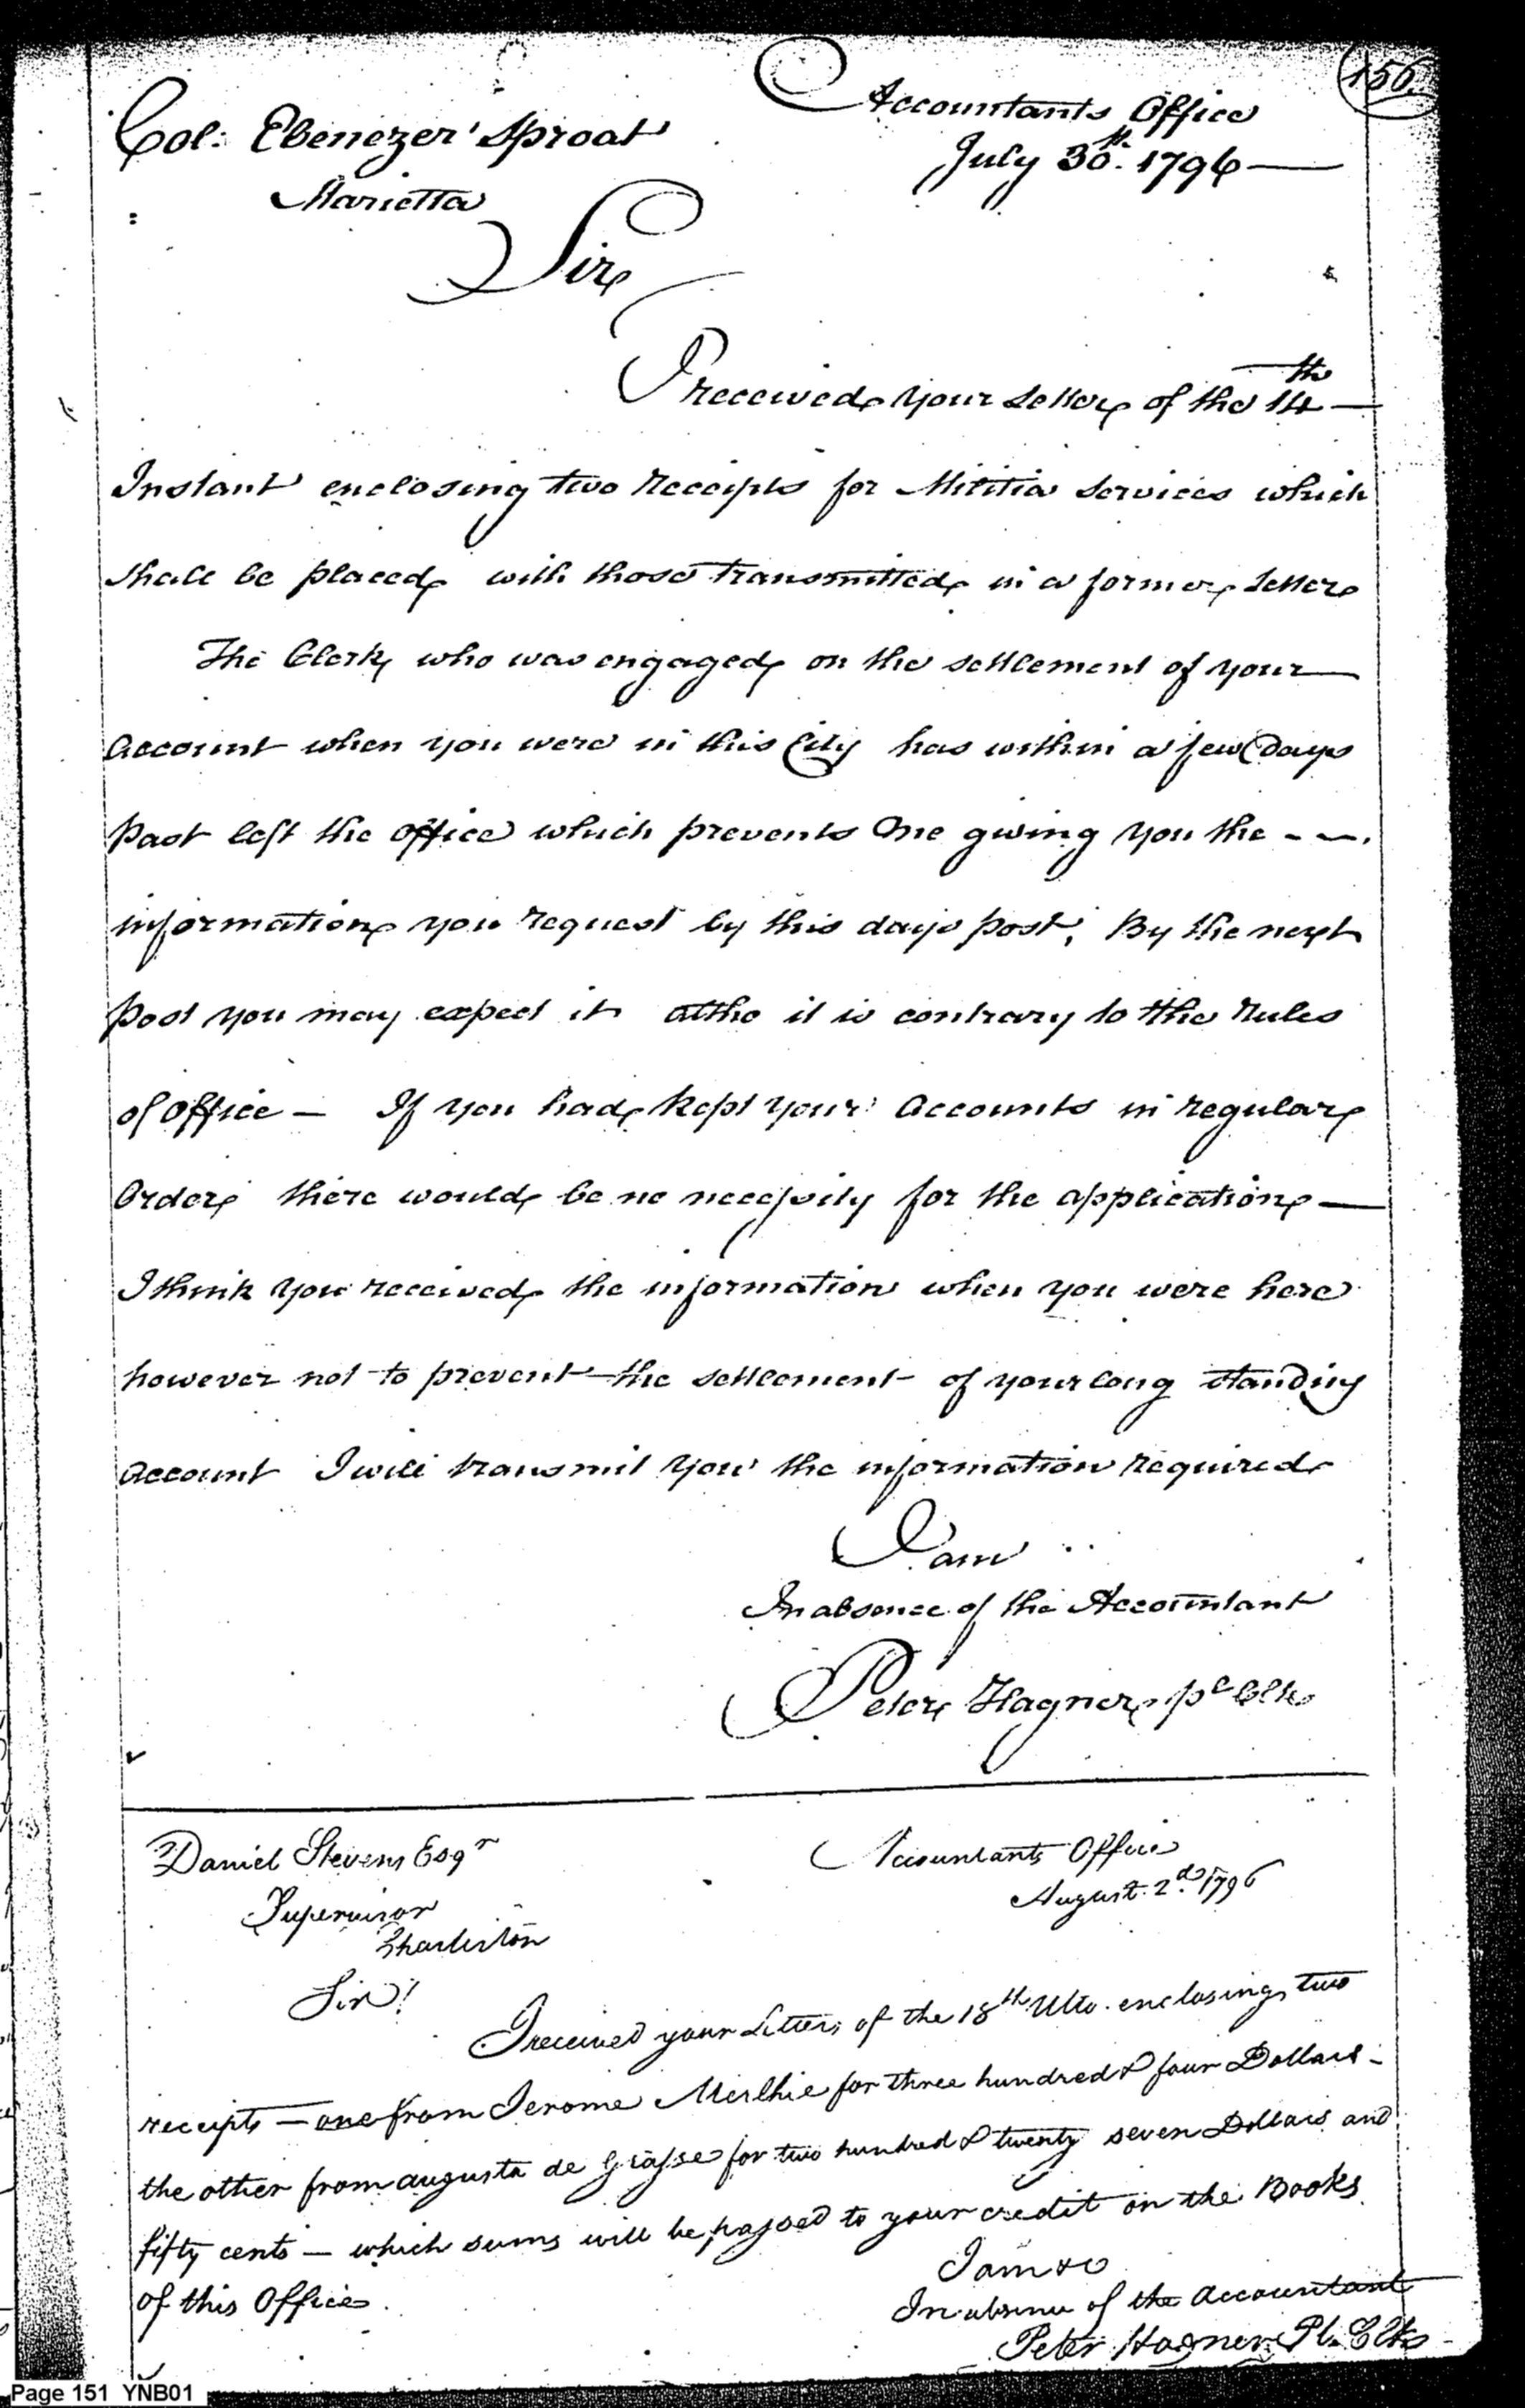 150
Col: Ebenezer Sproat
Accountants Office
July 30th. 1796 —
Marietta
Sir
I received your Letter of the 14th —
Instant enclosing two Receipts for Militia Services which
shall be placed with those transmitted in a former Letter
The Clerk who was engaged on the settlement of your —
Account when you were in this City has within a few Days
Past left the office which prevents me giving you the - - .
information you request by this days post, By the next
post you may expect it altho it is contrary to the Rules
of office — If you had kept your Accounts in regular
Order there would be no necessity for the application —
I think you received the information when you were here
however not to prevent the settlement of your long standing
Account I will transmit you the information required
I am
In absence of the Accountant
Peter Hagner, pl Clk
Daniel Stevens Esqr
Accountants Office
August 2d. 1796
Supervisor
Charleston
Sir!
I received your Letter, of the 18th Ulto. enclosing two
receipts — one from Jerome for three hundred & four Dollars -
the other from augusta de Grasse for two hundred & twenty seven Dollars and
fifty cents — which sums will be passed to your credit on the Books
of this Office.
I am &c
In absence of the Accountant
Peter Hagner Pl. Clk
Page 151 YNB01